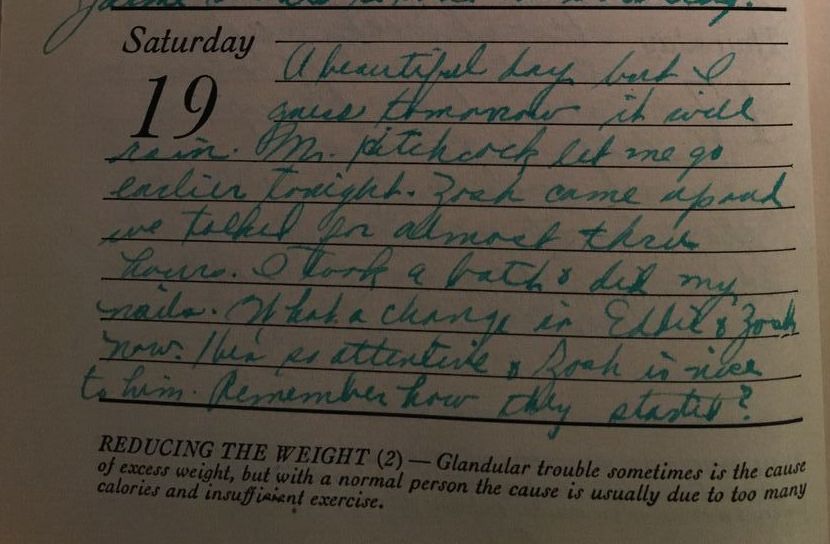 Saturday
19
A beautiful day but I
guess tomorrow it will
rain. Mr. Hitchcock let me go
earlier tonight. Zosh came up and
we talked for almost three
hours. I took a bath & did my
nails. What a change in Eddie & Zosh
now. He's so attentive & Zosh is nice
to him. Remember how they started?
REDUCING THE WEIGHT (2) — Glandular trouble sometimes is the cause
of excess weight, but with a normal person the cause is usually due to too many
calories and insufficient exercise.